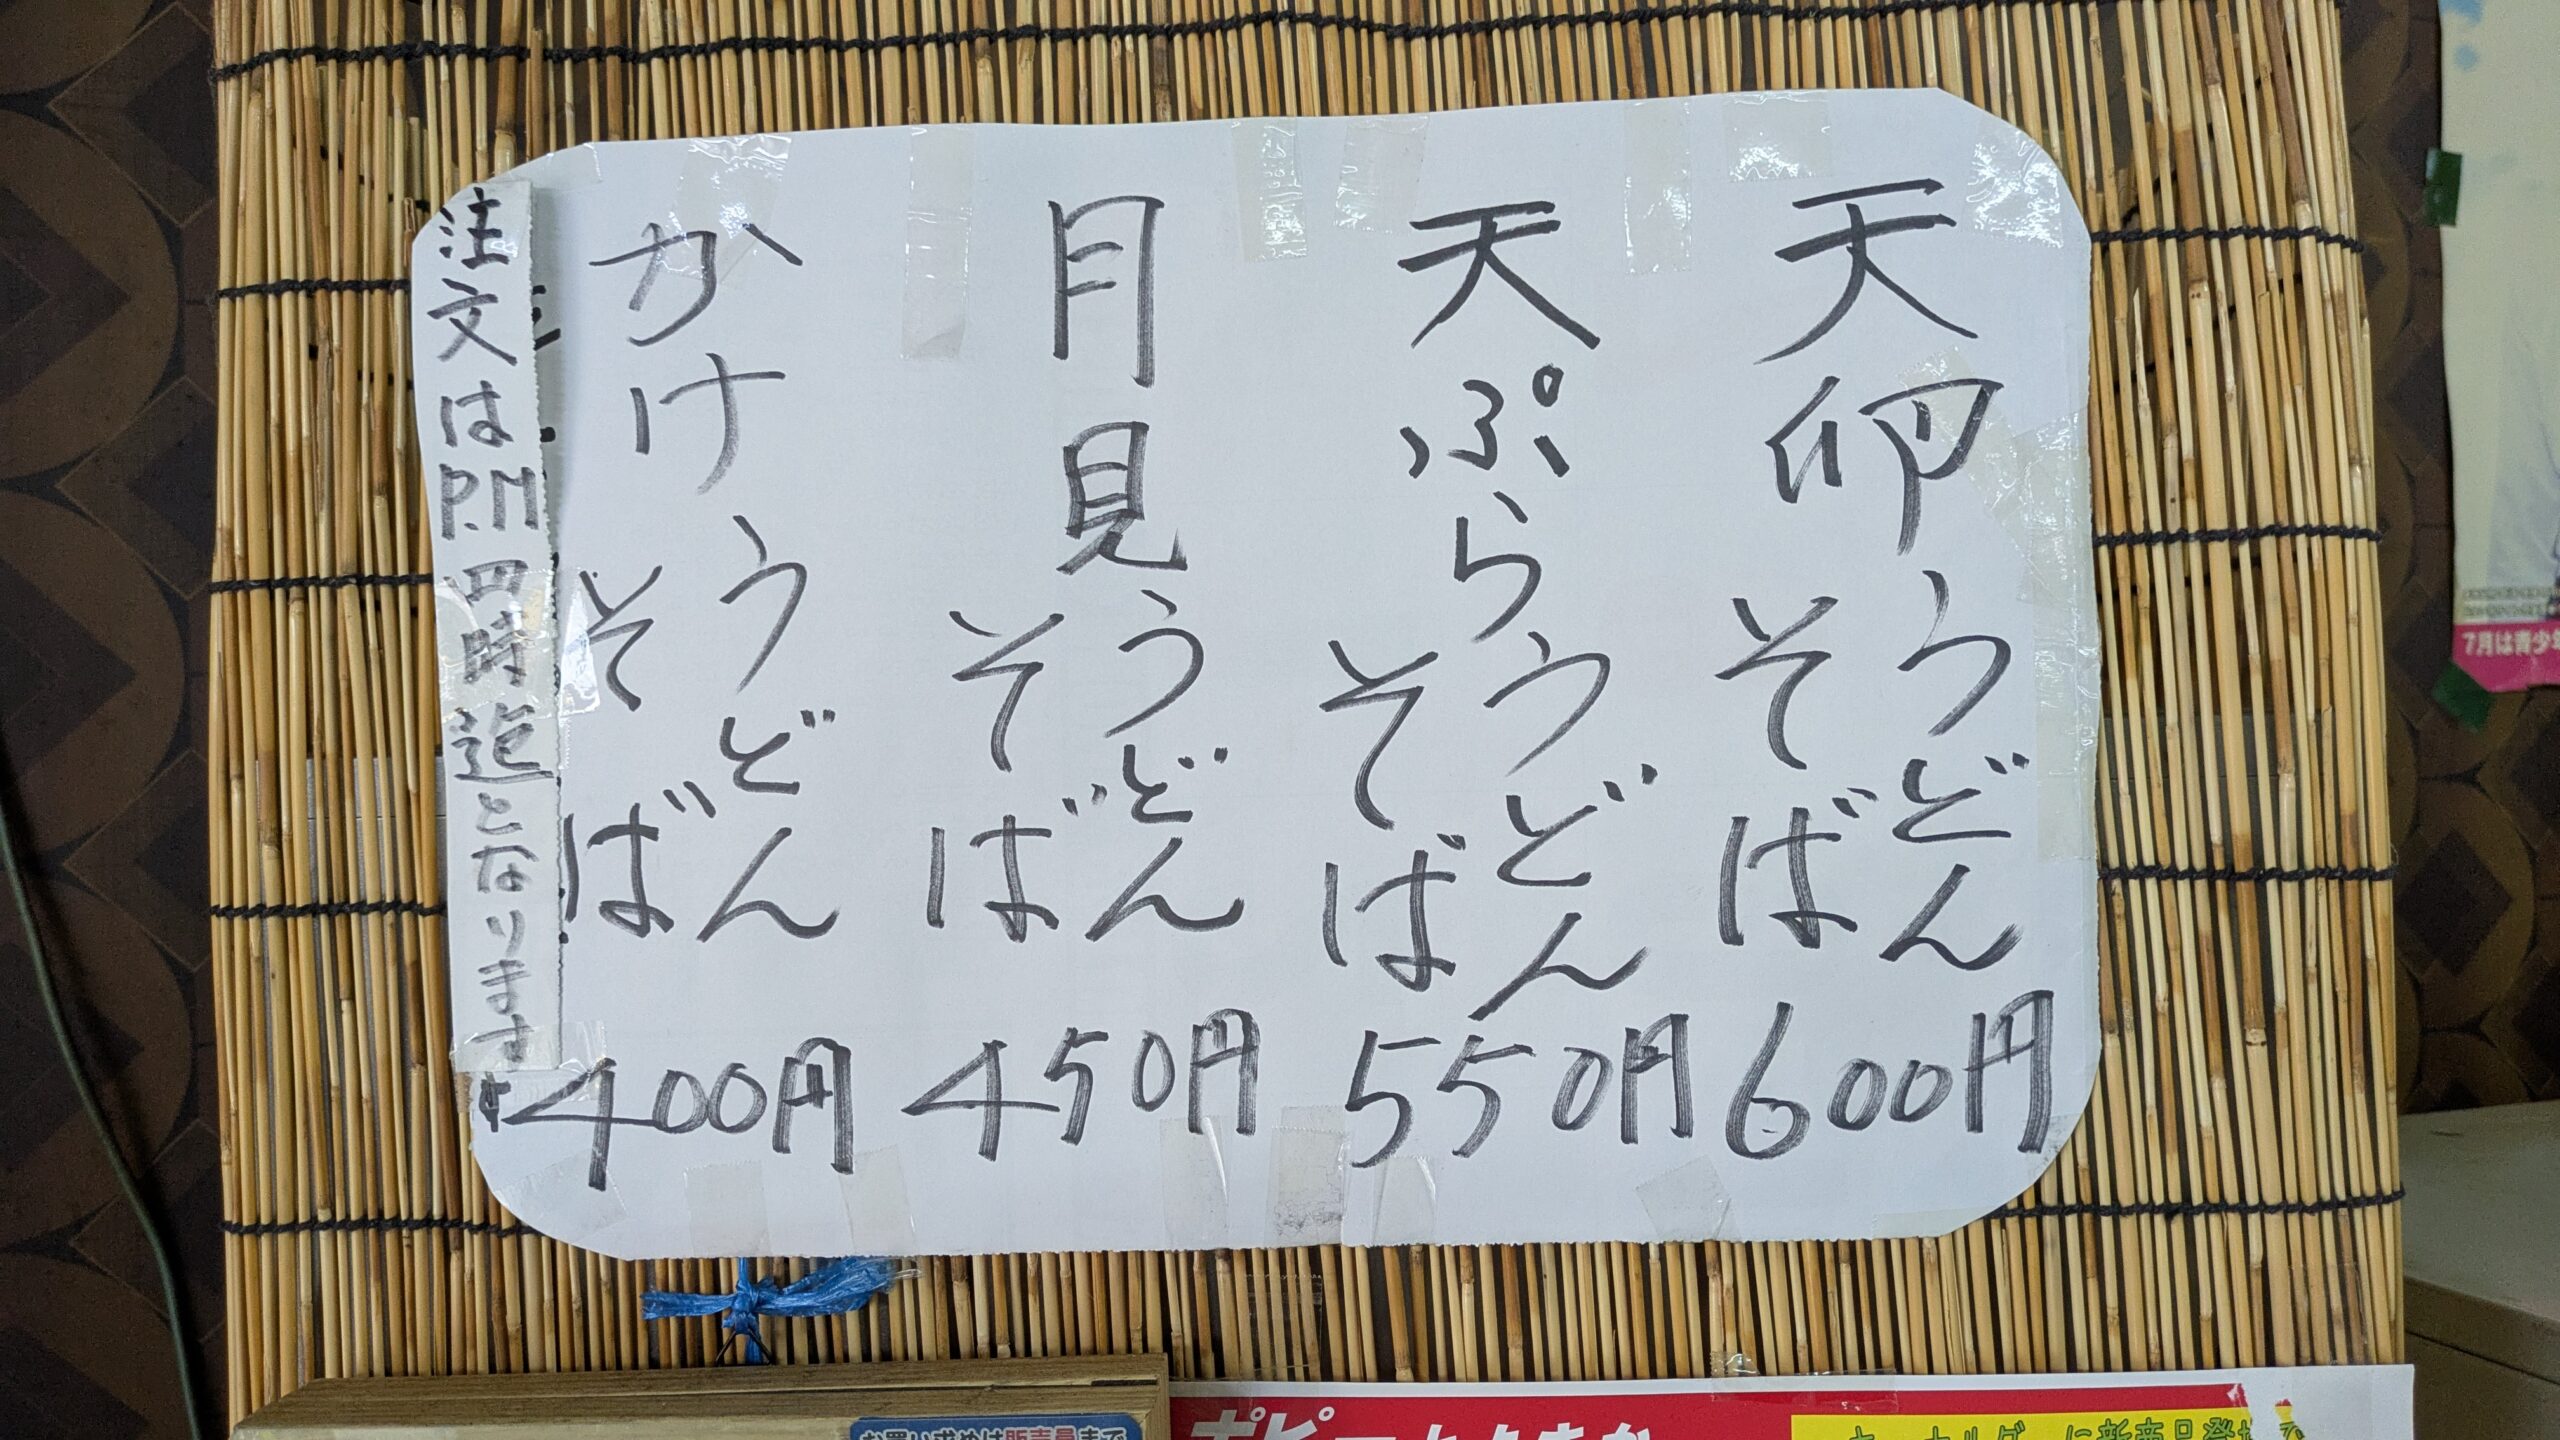 天卵うどん
そば
600円
天ぷらうどん
そば
550円
月見うどん
そば
450円
かけうどん
そば
400円
注文はP.M四時迄となります
7月は青少年
お買い求めは販売員まで